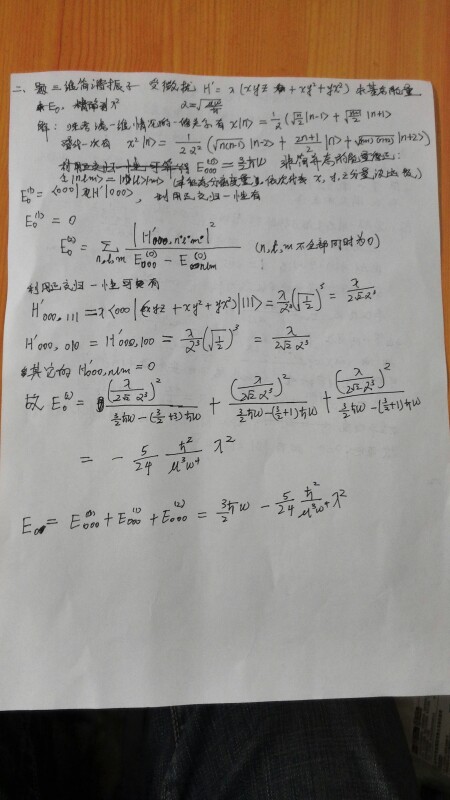 二、题 三维简谐振子 受微扰 H' = λ(xyz + xy² + yx²) 求基态能量
E₀. 到 λ² α = √(μω/ħ)
解: 先考虑一维情况的 一维公式有 x|n⟩ = 1/α (√(n/2) |n-1⟩ + √((n+1)/2) |n+1⟩
x²|n⟩ = 1/(2α²) (√(n(n-1)) |n-2⟩ + (2n+1)/2 |n⟩ + √((n+1)(n+2)) |n+2⟩)
E₀₀₀⁽⁰⁾ = 3/2 ħω 非简并态的能量修正:
|nlm⟩ = |n⟩|l⟩|m⟩ x, y, z 分量
E₀⁽¹⁾ = ⟨000|H'|000⟩, 利用正交归一性有
E₀⁽¹⁾ = 0
E₀⁽²⁾ = Σ_{n,l,m} |H'₀₀₀,nlm|² / (E₀₀₀⁽⁰⁾ - E_nlm⁽⁰⁾) (n, l, m 不全部同时为0)
利用正交归一性可有
H'₀₀₀,₁₁₁ = λ⟨000|(xyz + xy² + yx²)|111⟩ = λ/α³ (√(1/2))³ = λ/(2√2 α³)
H'₀₀₀,₀₁₀ = H'₀₀₀,₁₀₀ = λ/α³ (√(1/2))³ = λ/(2√2 α³)
其它的 H'₀₀₀,nlm = 0
故 E₀⁽²⁾ = (λ/(2√2 α³))² / (3/2 ħω - (3/2 + 3)ħω) + (λ/(2√2 α³))² / (3/2 ħω - (3/2 + 1)ħω) + (λ/(2√2 α³))² / (3/2 ħω - (3/2 + 1)ħω)
= - 5/24 ħ²/(μ³ω⁴) λ²
E₀ = E₀₀₀⁽⁰⁾ + E₀₀₀⁽¹⁾ + E₀₀₀⁽²⁾ = 3/2 ħω - 5/24 ħ²/(μ³ω⁴) λ²